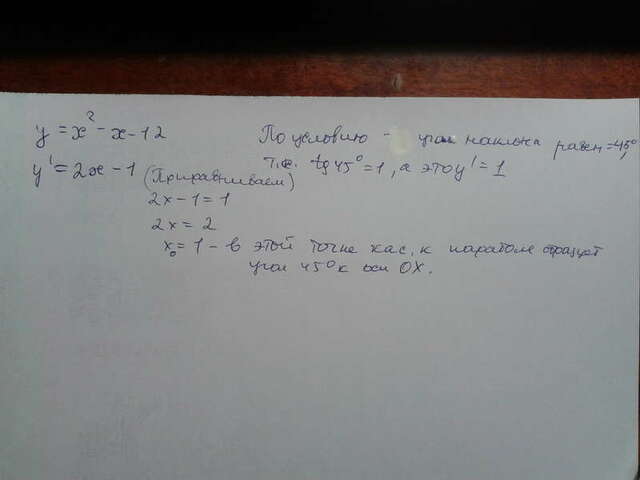 y = x² - x - 12
По условию - угол наклона равен = 45°
y' = 2x - 1 (Приравниваем)
т.е. tg 45° = 1, а это y' = 1
2x - 1 = 1
2x = 2
x₀ = 1 - в этой точке кас. к параболе образует
угол 45° к оси OX.